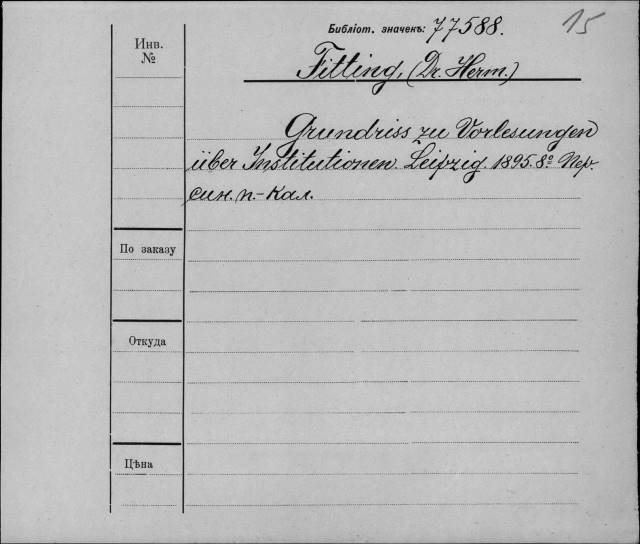 Библіот. значекъ: 77588.
15
Инв.
№
Fitting, (Dr. Herm.)
Grundriss zu Vorlesungen
über Institutionen. Leipzig. 1895. 8º. Пер.
син. п.-кал.
По заказу
Откуда
Цѣна